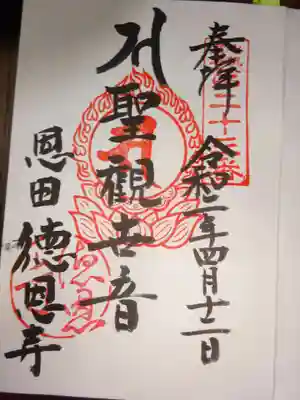 奉拝
令和二年四月十二日
聖觀世音
恩田 徳恩寺